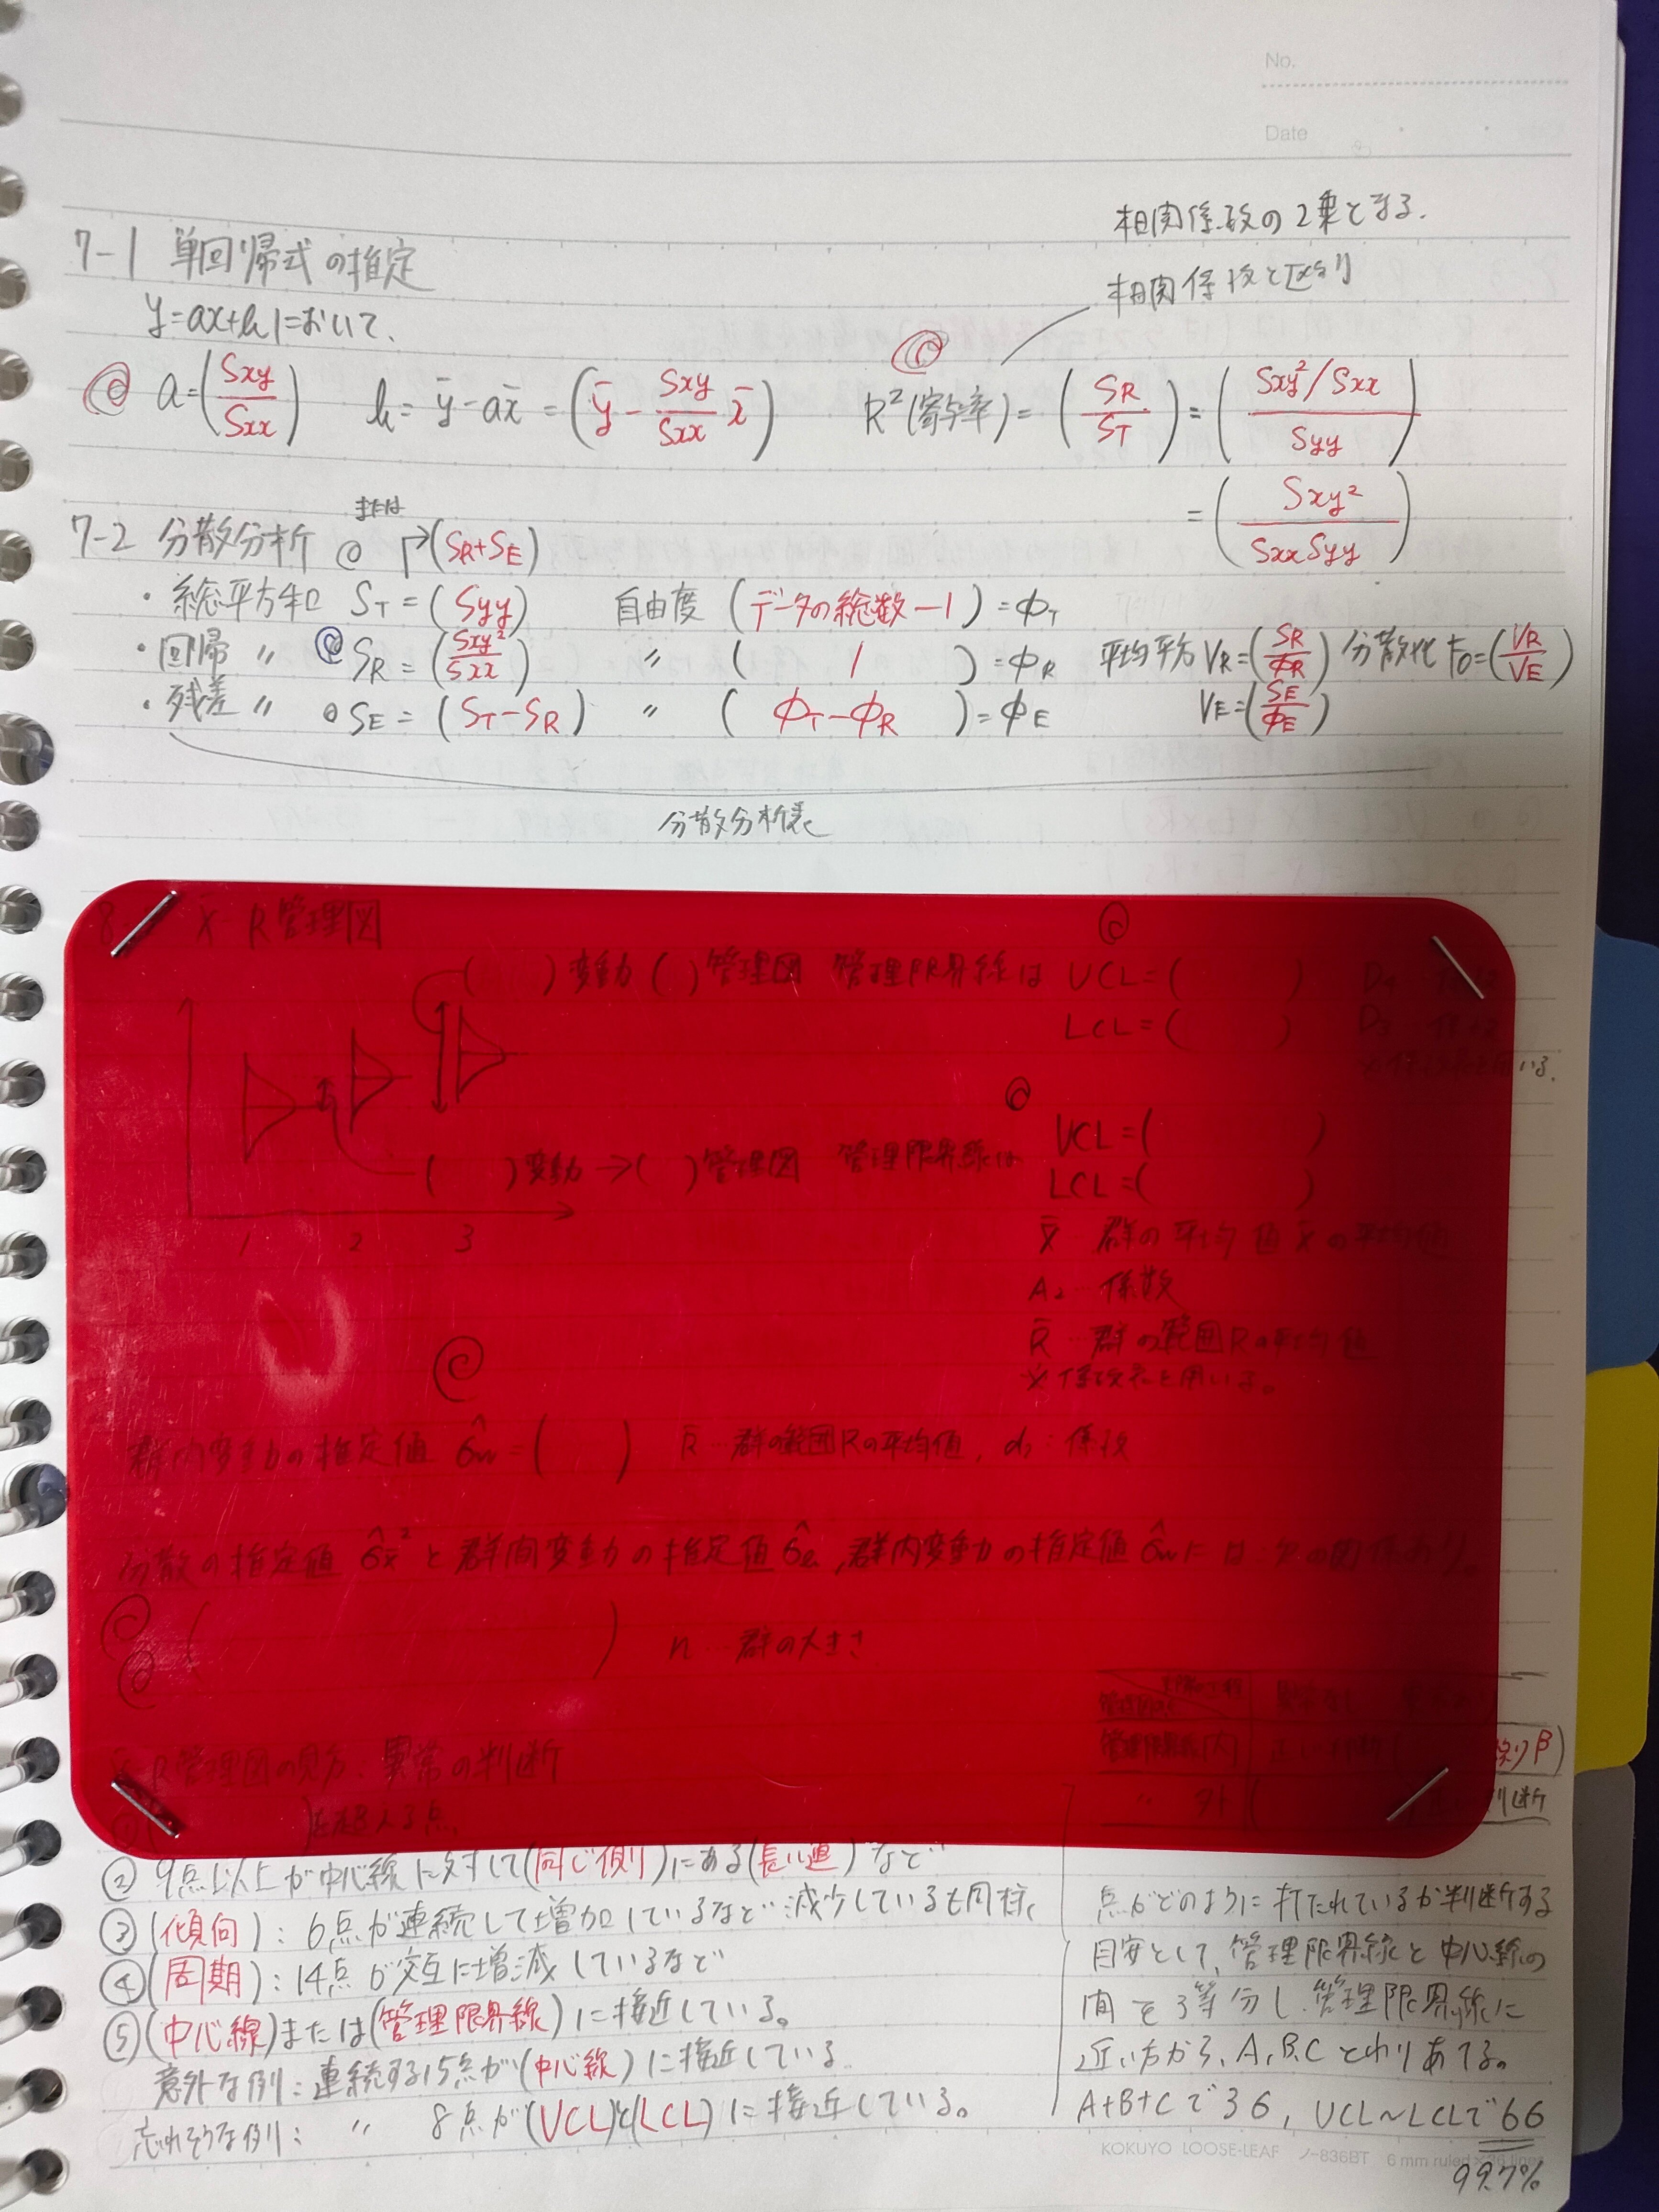 No.
Date
相関係数の2乗となる.
7-1 単回帰式の推定
相関係数と区別
y=ax+bにおいて、
a=(Sxy/Sxx) b=ȳ-ax̄=(ȳ-Sxy/Sxx x̄) R²(寄与率)=(SR/ST)=(Sxy²/Sxx/Syy)
=(Sxy²/SxxSyy)
または
7-2 分散分析 (SR+SE)
・総平方和 ST=(Syy) 自由度(データの総数-1)=φT
・回帰 〃 SR=(Sxy²/Sxx) 〃 (1)=φR 平均平方 VR=(SR/φR) 分散比 F0=(VR/VE)
・残差 〃 SE=(ST-SR) 〃 (φT-φR)=φE VE=(SE/φE)
分散分析表
x̄-R管理図
( )変動( )管理図 管理限界線は UCL=( ) D4
LCL=( ) D3
いる.
UCL=( )
( )変動→( )管理図 管理限界線は
LCL=( )
1 2 3
群の平均値x̄の平均値
A2 係数
R̄ 群の範囲Rの平均値
※係数表を用いる。
群内変動の推定値 σ̂w=( ) R̄ 群の範囲Rの平均値, d2:係数
分散の推定値 σ̂x̄²と群間変動の推定値σ̂b,群内変動の推定値σ̂wには次の関係あり。
( ) n 群の大きさ
管理限界内
誤りβ)
R管理図の見方:異常の判断
〃 外 ( 判断
を超える点
②9点以上が中心線に対して(同じ側)にある(長い連)など
③(傾向):6点が連続して増加しているなど 減少しているも同様
④(周期):14点が交互に増減しているなど
⑤(中心線)または(管理限界線)に接近している。
意外な例:連続する15点が(中心線)に接近している.
忘れそうな例: 〃 8点が(UCL)と(LCL)に接近している。
点がどのように打たれているか判断する
目安として、管理限界線と中心線の
間を3等分し、管理限界線に
近い方から、A,B,Cとわりあてる。
A+B+Cで3σ, UCL~LCLで6σ
99.7%
KOKUYO LOOSE-LEAF ノ-836BT 6 mm ruled×36 lines